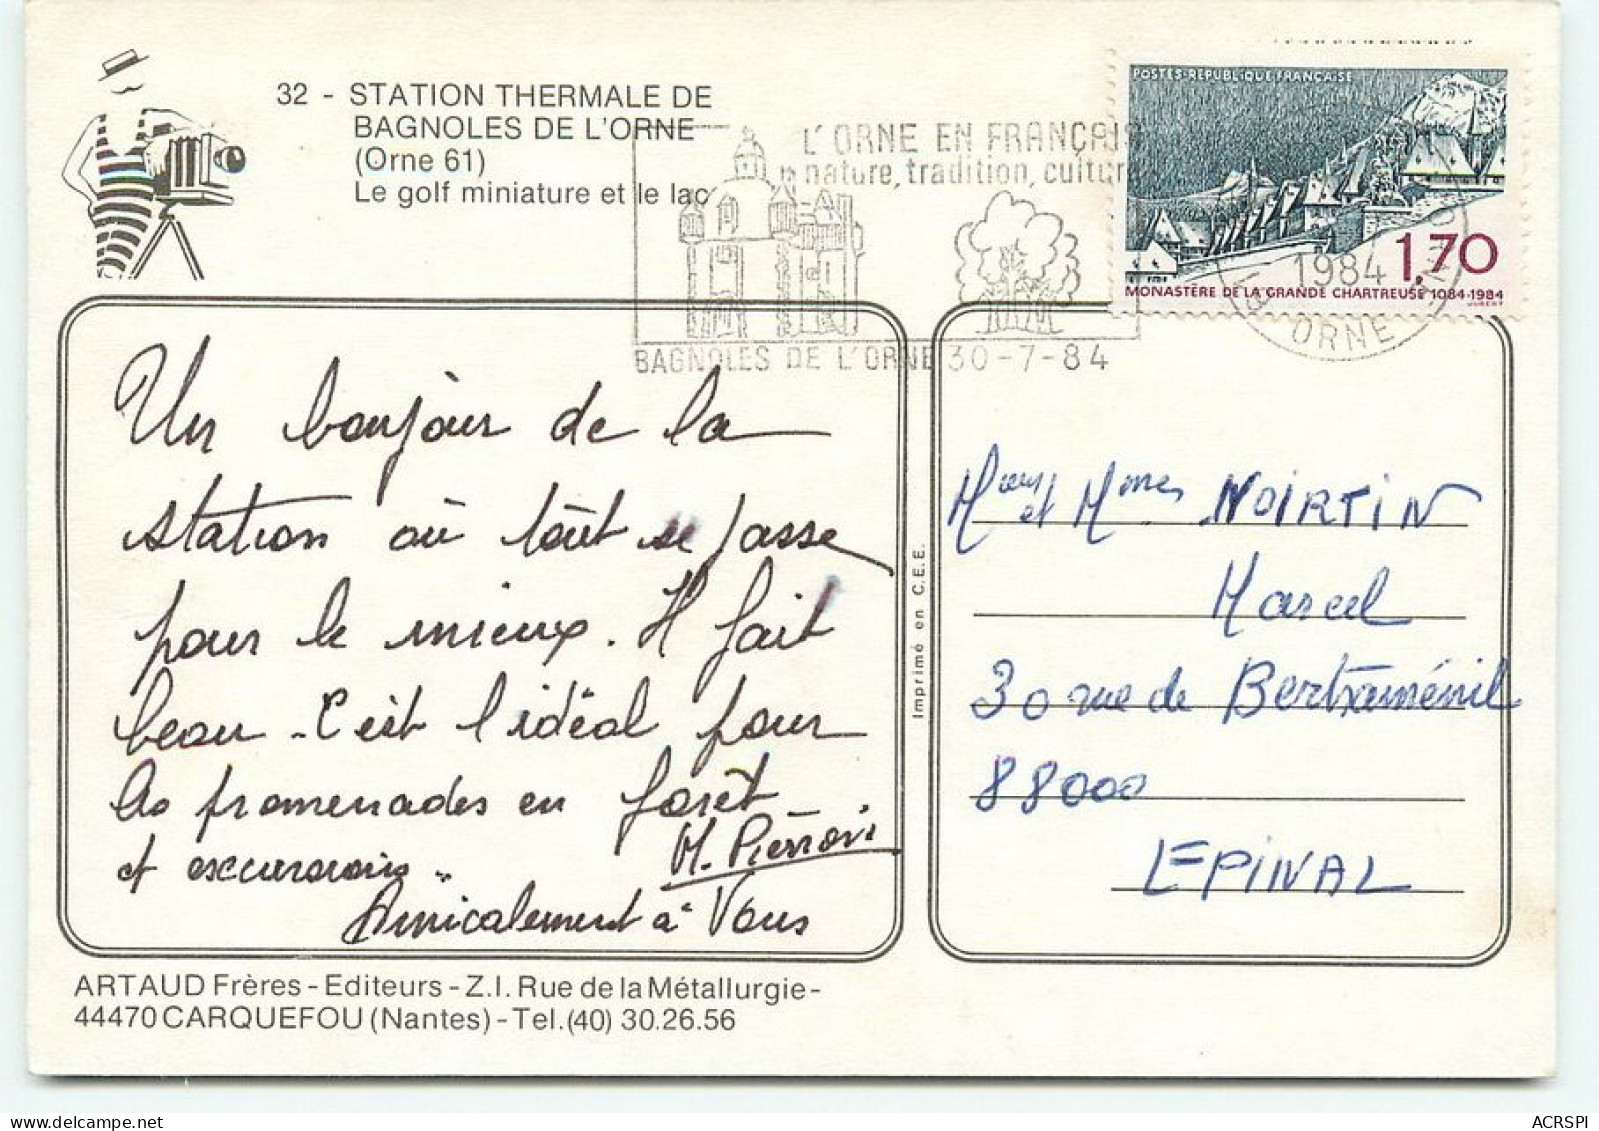 32 - STATION THERMALE DE
BAGNOLES DE L'ORNE
(Orne 61)
Le golf miniature et le lac
L'ORNE EN FRANÇAIS
nature, tradition, cultura
BAGNOLES DE L'ORNE 30-7-84
POSTES-REPUBLIQUE FRANÇAISE
1,70
MONASTÈRE DE LA GRANDE CHARTREUSE 1084-1984
1984
ORNE
Un bonjour de la
station où tout se passe
pour le mieux. Il fait
beau - C'est l'idéal pour
les promenades en forêt
et excursions..
M. Pierron
Amicalement à Vous
Imprimé en C.E.E.
et Mmes NOIRTIN
Marcel
30 rue de Bertraménil
88000
EPINAL
ARTAUD Frères - Editeurs - Z.I. Rue de la Métallurgie -
44470 CARQUEFOU (Nantes) - Tel. (40) 30.26.56
ACRSPI